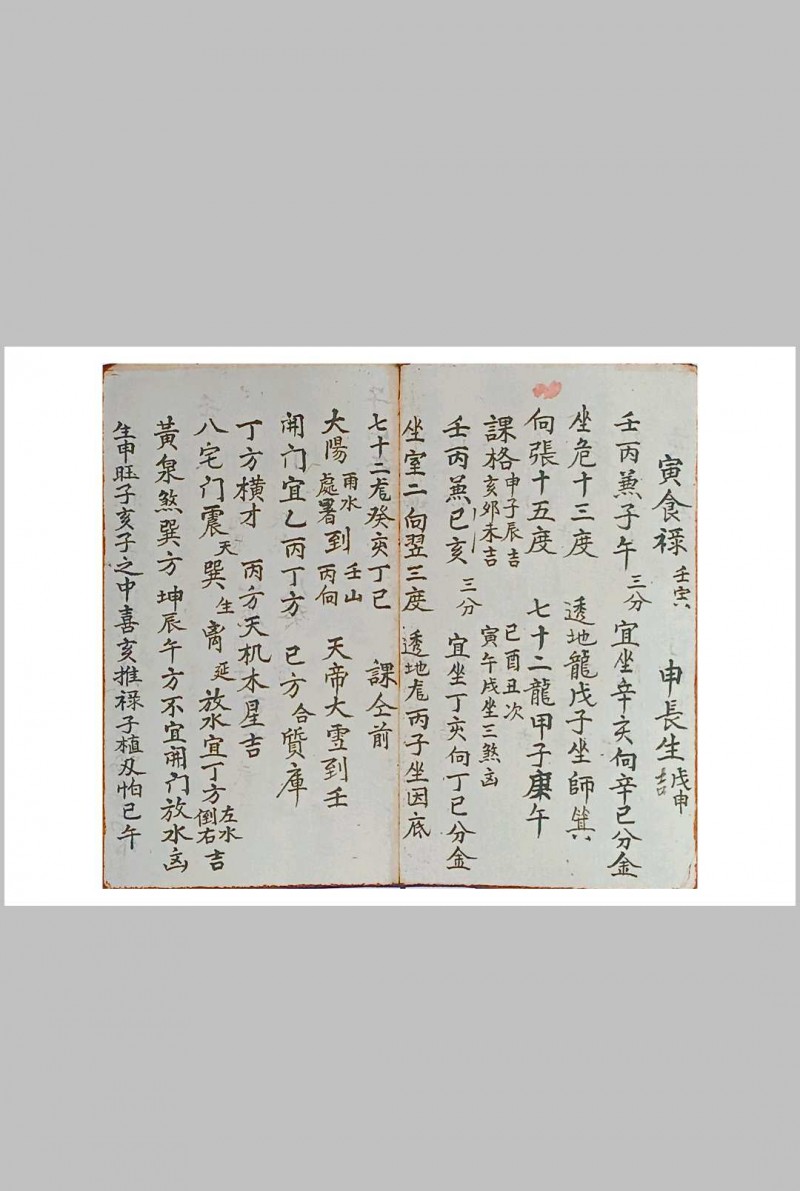 寅食祿 壬寅 申長生 戊申吉
壬丙兼子午 三分 宜坐辛亥向辛巳分金
坐危十三度 透地龍戊子坐師箕
向張十五度 七十二龍甲子庚午
課格 申子辰吉 亥卯未吉 巳酉丑次 寅午戌坐三煞凶
壬丙兼巳亥 三分 宜坐丁亥向丁巳分金
坐室二向翌三度 透地尨丙子坐因底
七十二尨癸亥丁巳 課仝前
大陽 雨水處暑 到 壬山丙向 天帝大雪到壬
開门宜乙丙丁方 巳方合質庫
丁方横才 丙方天机木星吉
八宅门震天巽生离延放水宜丁方 左水倒右 吉
黃泉煞巽方 坤辰午方不宜開门放水凶
生申旺子亥子之中喜亥推祿子植刄怕巳午